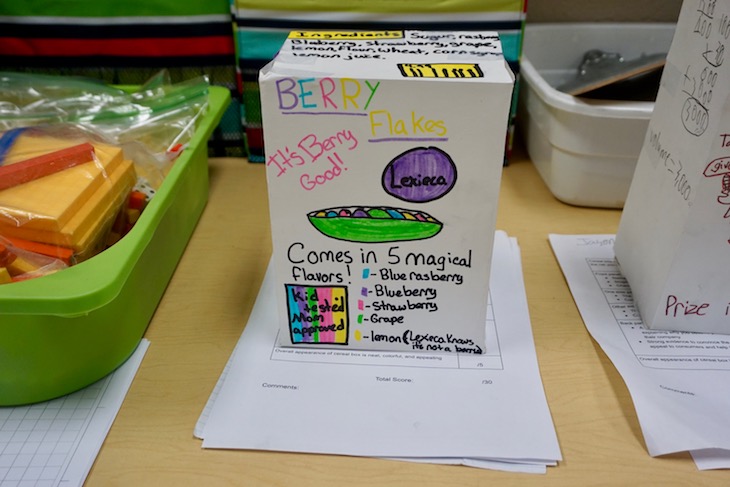 Ingredients Sugar,
Blaberry, Strawberry, grape,
lemon, flour, Wheat, corn
lemon juice.
BERRY
Flakes
It's Berry
Good!
Lexieca
Comes in 5 magical
flavors!
- Bluerasberry
- Blueberry
- Strawberry
- Grape
- lemon (Lexieca Knows
it's not a berry)
Kid
tested
Mom
approved
Overall appearance of cereal box is neat, colorful, and appealing
/5
Comments:
Total Score:
/30
Prize
their company
appeal to consumers and help
Overall appearance of cereal box
Comments: